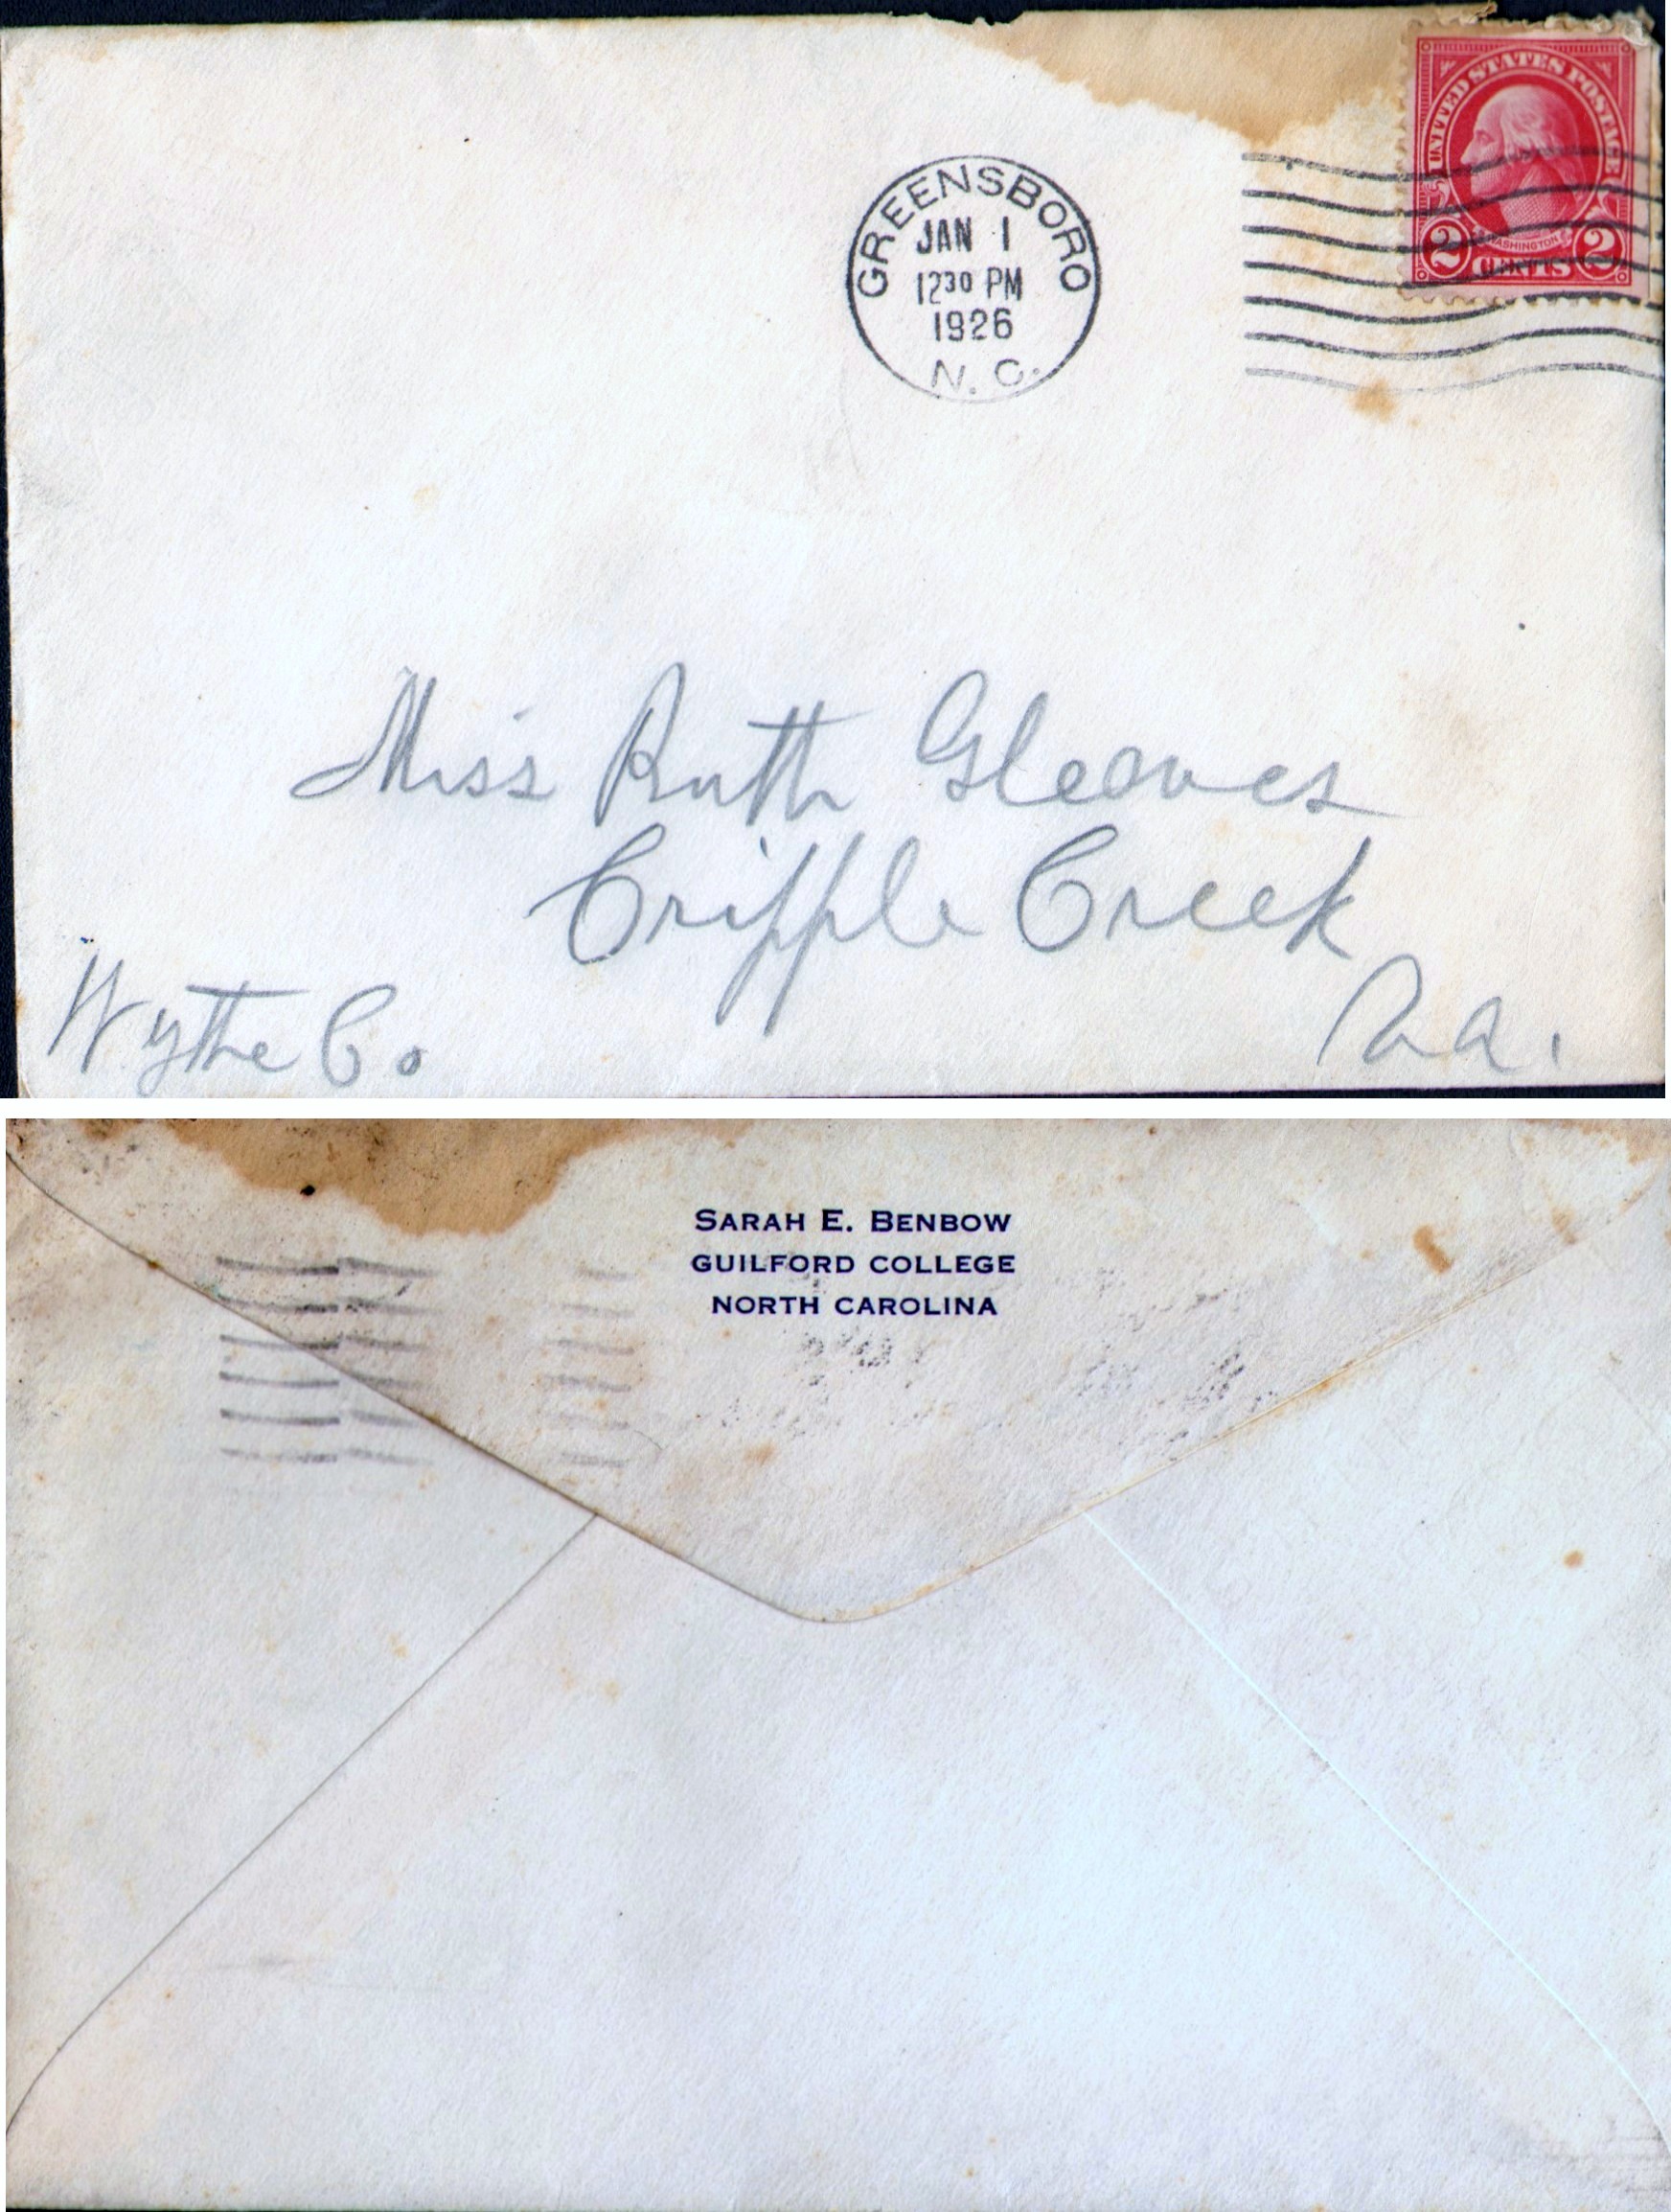 UNITED STATES POSTAGE
WASHINGTON
2 CENTS 2
GREENSBORO
JAN 1
12 30 PM
1926
N. C.
Miss Ruth Gleaves
Cripple Creek
Wythe Co
Va.
SARAH E. BENBOW
GUILFORD COLLEGE
NORTH CAROLINA